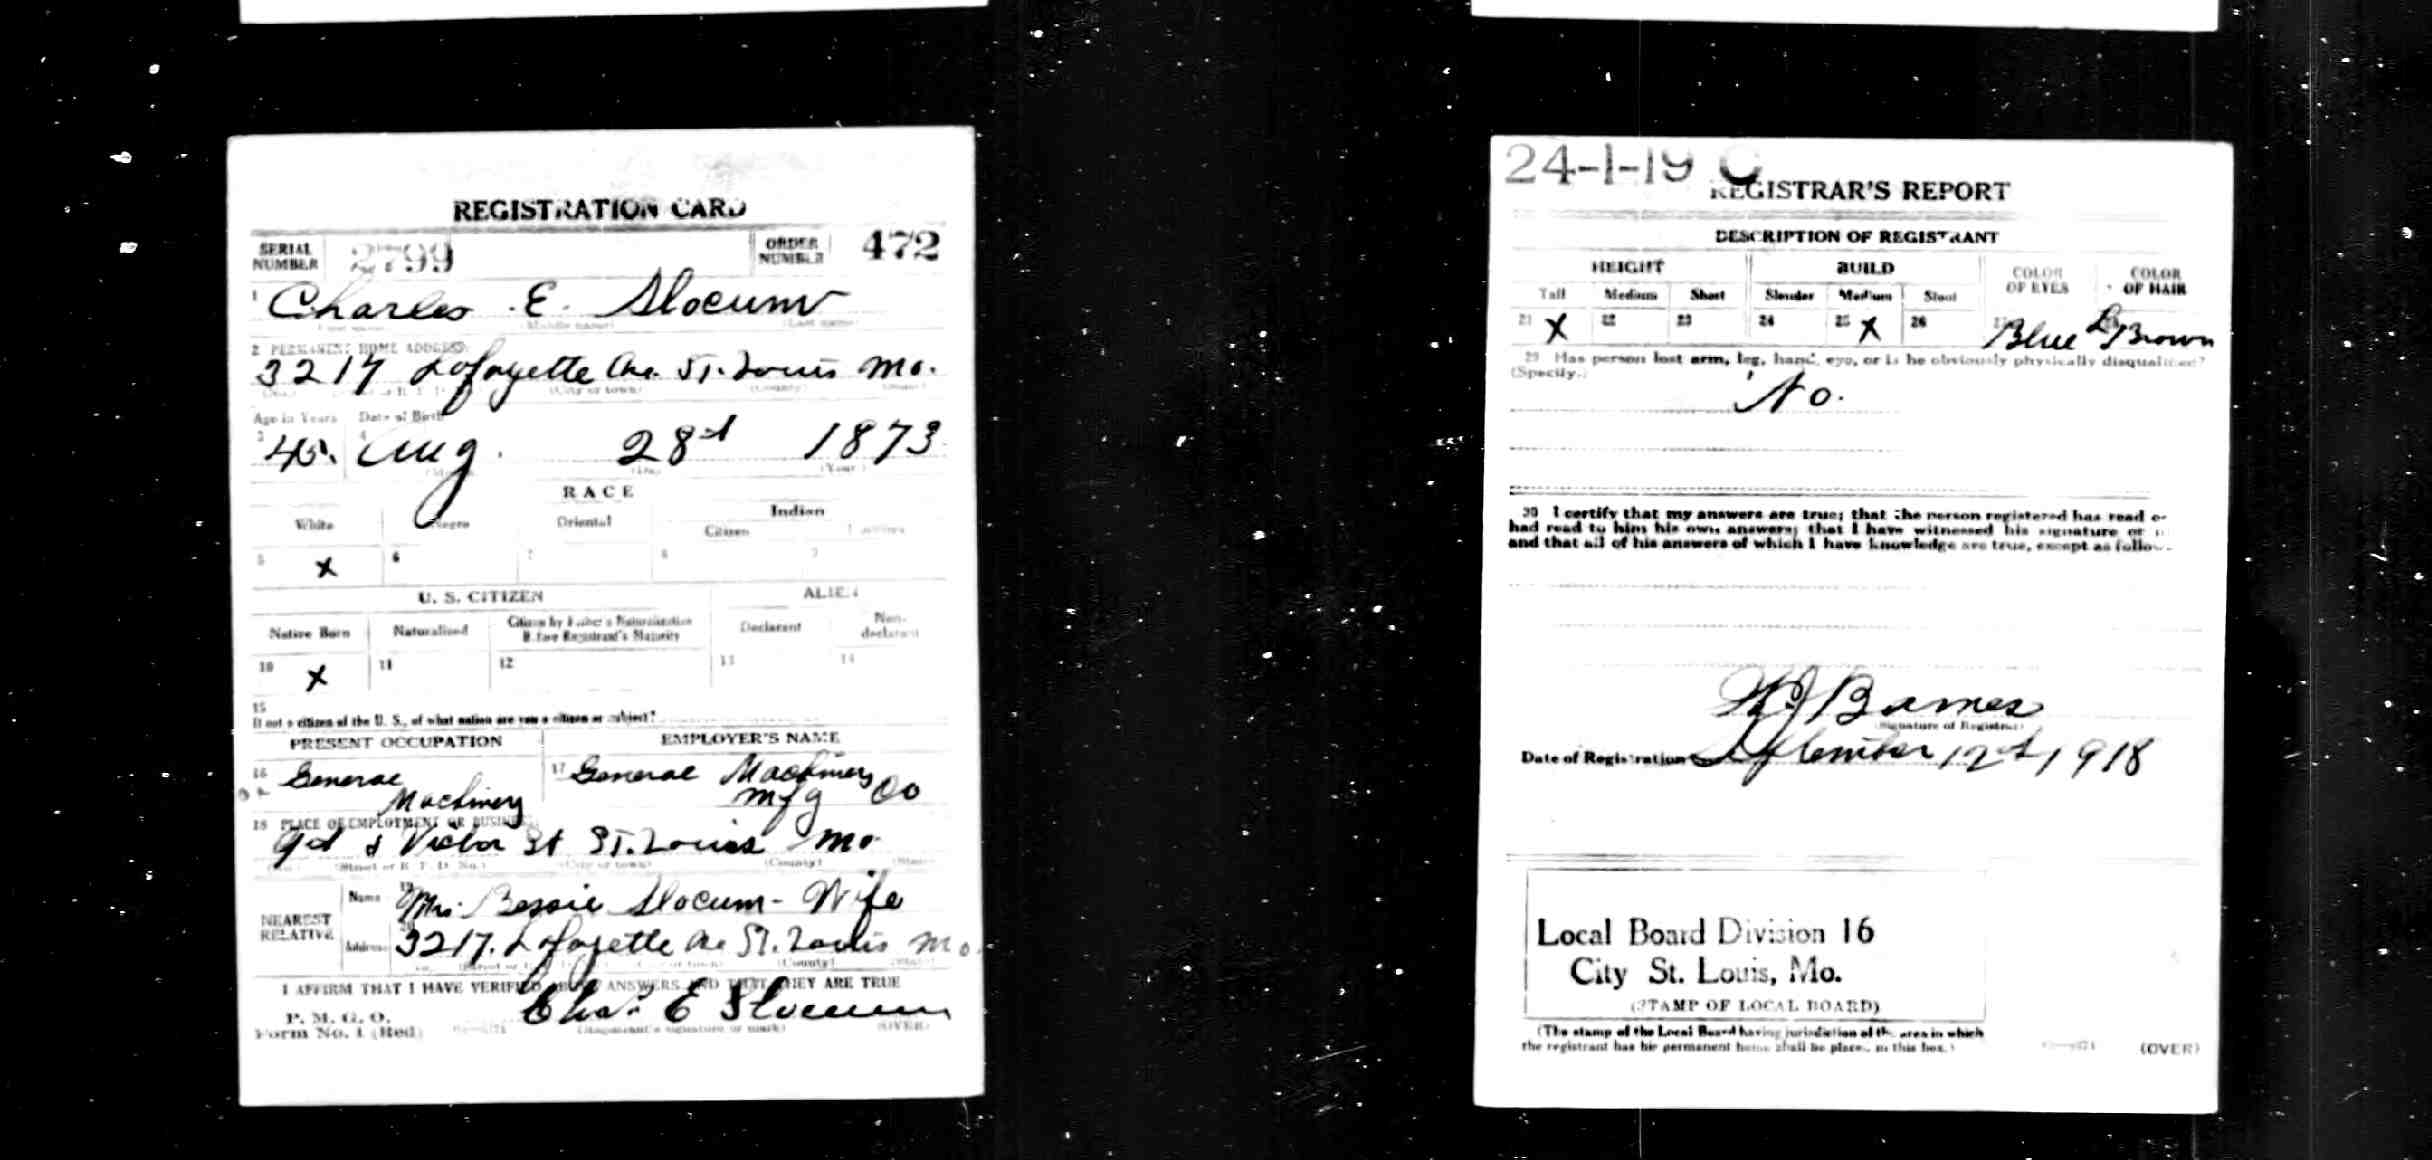 REGISTRATION CARD
SERIAL NUMBER 2799 ORDER NUMBER 472
1 Charles E. Slocum
(Middle name) (Last name)
2 PERMANENT HOME ADDRESS:
3217 Lafayette Ave. St. Louis Mo.
(City or town) (County)
Age in Years Date of Birth
3 45. 4 Aug. 28th 1873
(Year)
RACE
White Negro Oriental Indian
Citizen
5 X 6 7 8
U. S. CITIZEN ALIEN
Native Born Naturalized Citizen by Father's Naturalization Before Registrant's Majority Declarant Non-declarant
10 X 11 12 13 14
15
If not a citizen of the U. S., of what nation are you a citizen or subject?
PRESENT OCCUPATION EMPLOYER'S NAME
16 General 17 General Machinery
Machinery Mfg Co
18 PLACE OF EMPLOYMENT OR BUSINESS:
9th & Victor St St. Louis Mo.
(Street or R. F. D. No.) (City or town) (County) (State)
NEAREST RELATIVE
Name 19 Mrs. Bessie Slocum - Wife
Address 20 3217. Lafayette Ave St. Louis Mo.
(County)
I AFFIRM THAT I HAVE VERIFIED ABOVE ANSWERS AND THAT THEY ARE TRUE
P. M. G. O.
Form No. 1 (Red) Chas. E Slocum
(Registrant's signature or mark) (OVER)
24-1-19 C
REGISTRAR'S REPORT
DESCRIPTION OF REGISTRANT
HEIGHT BUILD COLOR OF EYES COLOR OF HAIR
Tall Medium Short Slender Medium Stout
21 X 22 23 24 25 X 26 27 Blue L Brown
29 Has person lost arm, leg, hand, eye, or is he obviously physically disqualified?
(Specify.)
No.
30 I certify that my answers are true; that the person registered has read or
had read to him his own answers; that I have witnessed his signature or
and that all of his answers of which I have knowledge are true, except as follows
Barnes
(Signature of Registrar)
Date of Registration September 12th 1918
Local Board Division 16
City St. Louis, Mo.
(STAMP OF LOCAL BOARD)
(The stamp of the Local Board having jurisdiction of the area in which
the registrant has his permanent home shall be placed in this box.)
(OVER)